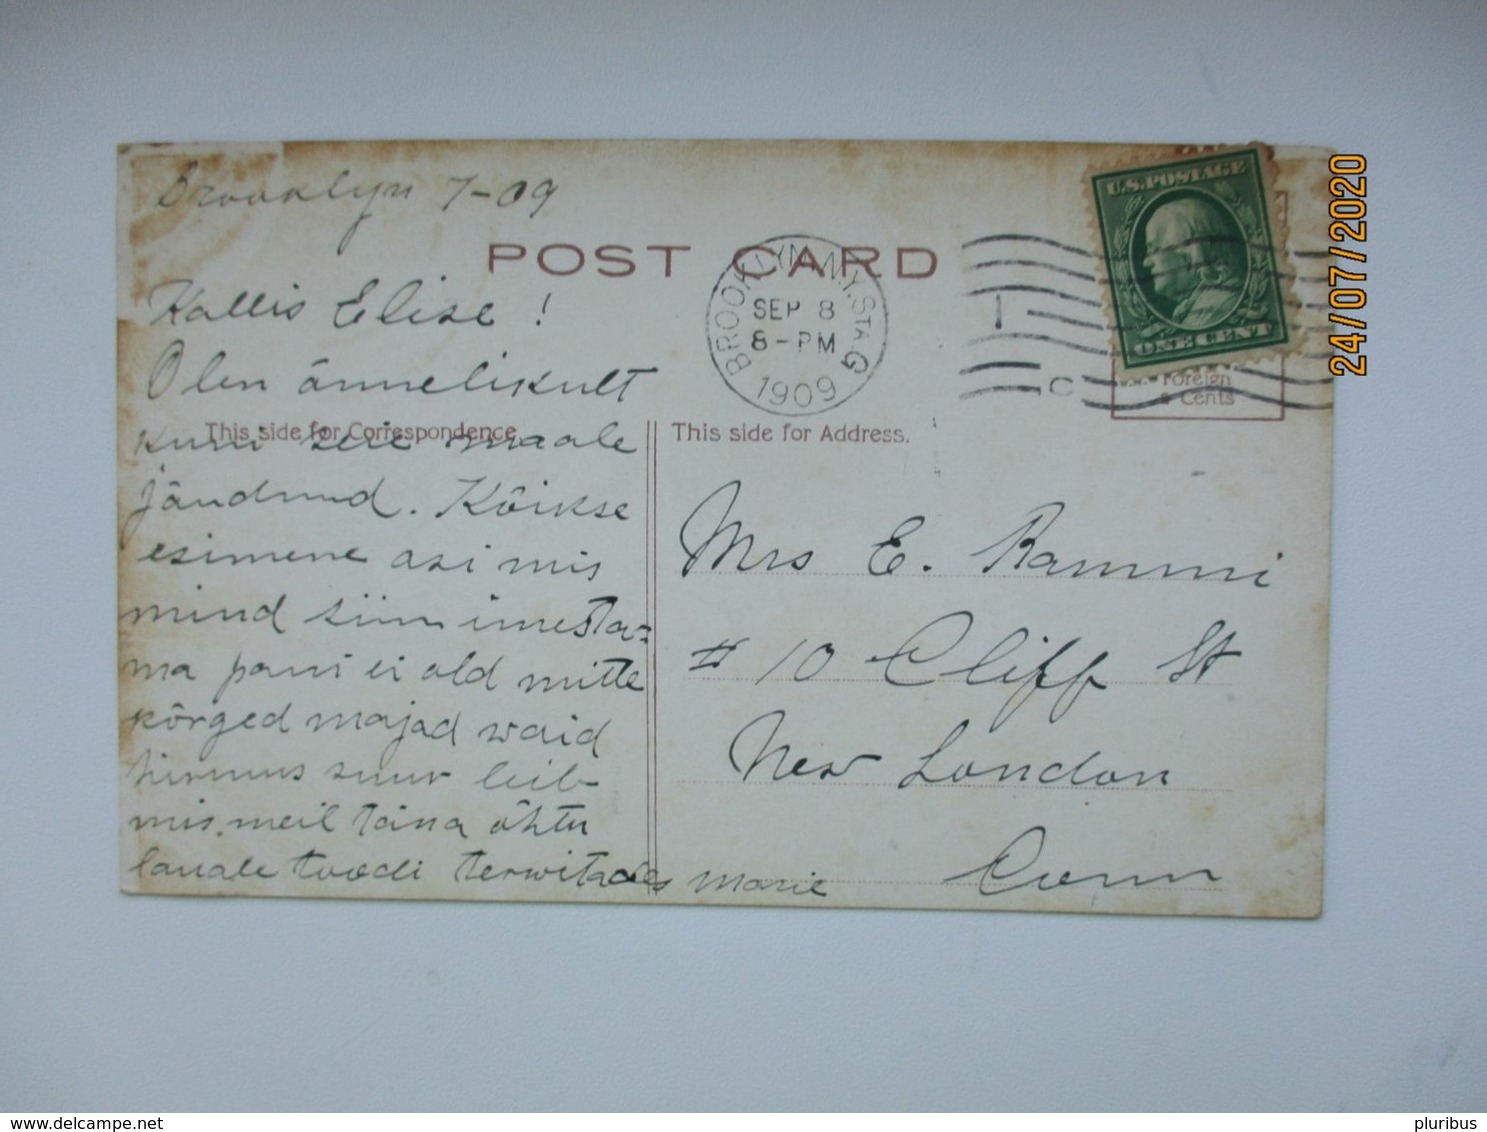 Brooklyn 7-09
POST CARD
BROOKLYN, N.Y. STA. G
SEP 8
8-PM
1909
U.S. POSTAGE
ONE CENT
Foreign
2 Cents
Kallis Elise!
Olen õnnelikult
This side for Correspondence
kuni seie maale
jõudnud. Kõikse
esimene asi mis
mind siin imesta=
ma pani ei old mitte
kõrged majad waid
hirmus suur leib
mis meil täna õhtu
lauale toodi terwitades Marie
This side for Address.
Mrs E. Rammi
# 10 Cliff St
New London
Conn
24/07/2020
www.delcampe.net
pluribus